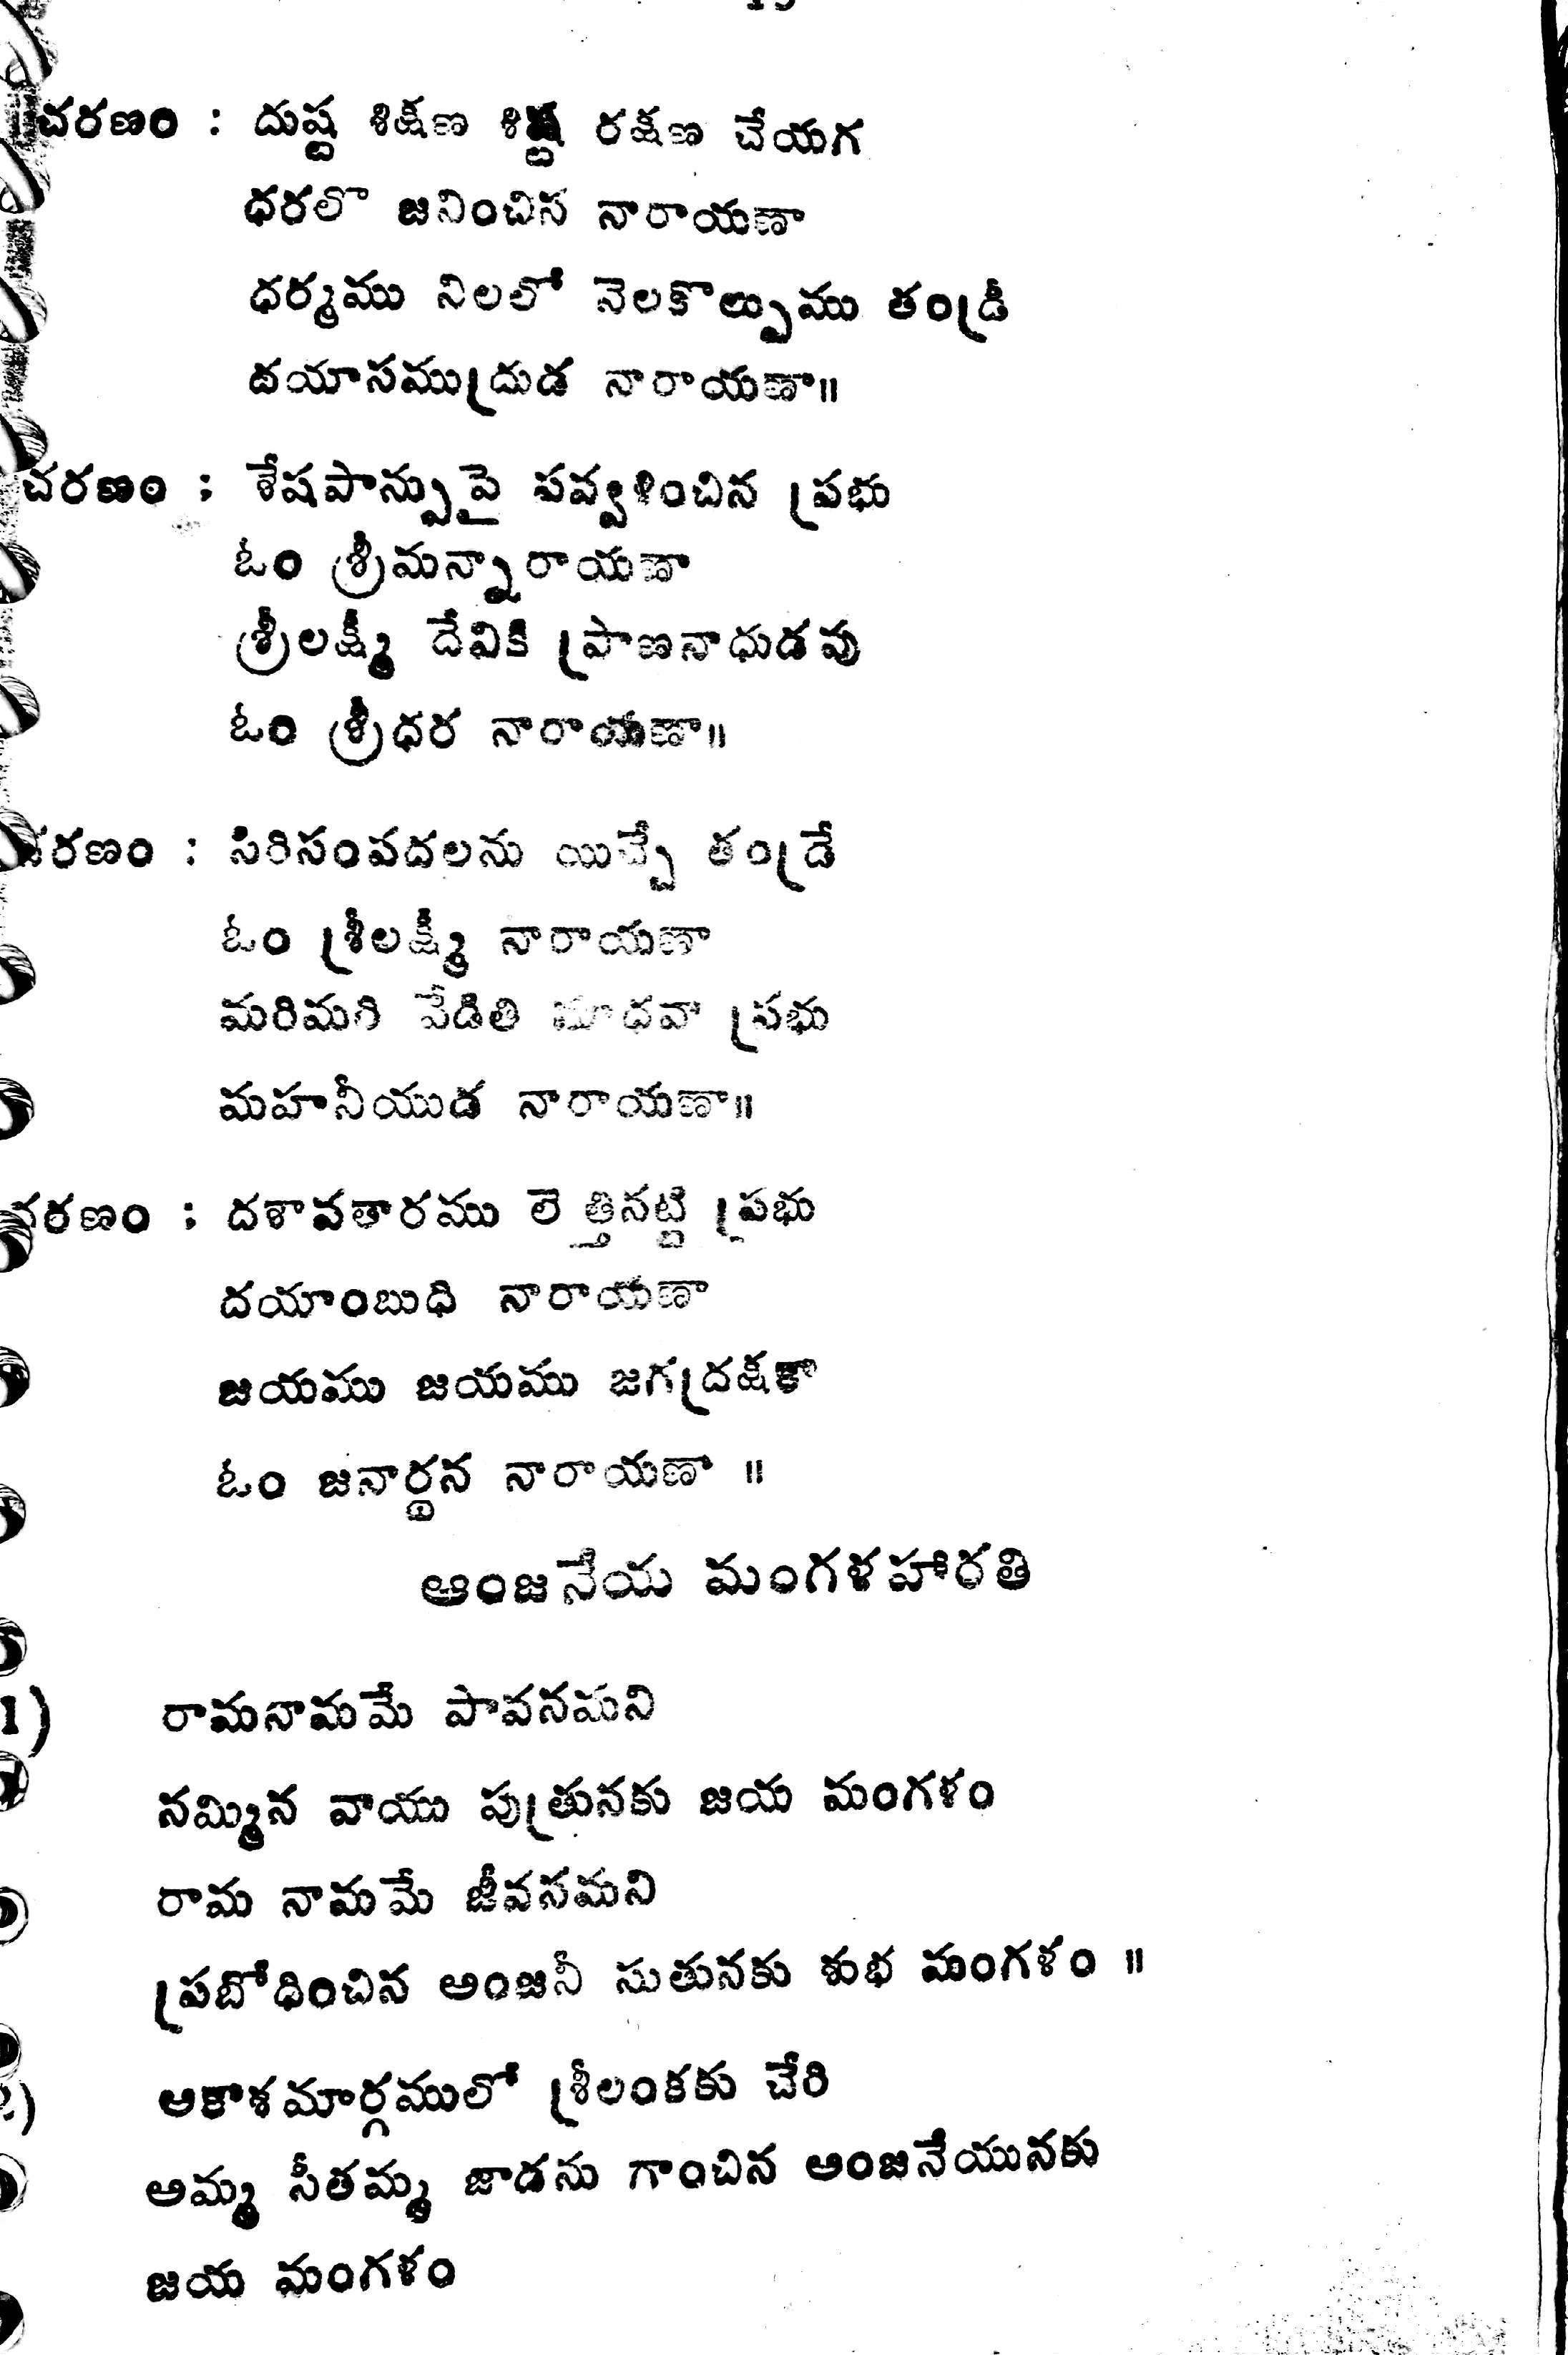 చరణం : దుష్ట శిక్షణ శిష్ట రక్షణ చేయగ
ధరలొ జనించిన నారాయణా
ధర్మము నిలలో నెలకొల్పుము తండ్రీ
దయాసముద్రుడ నారాయణా॥
చరణం : శేషపాన్పుపై పవ్వళించిన ప్రభు
ఓం శ్రీమన్నారాయణా
శ్రీలక్ష్మీ దేవికి ప్రాణనాధుడవు
ఓం శ్రీధర నారాయణా॥
చరణం : సిరిసంపదలను యిచ్చే తండ్రే
ఓం శ్రీలక్ష్మీ నారాయణా
మరిమరి వేడితి మాధవా ప్రభు
మహనీయుడ నారాయణా॥
చరణం : దశావతారము లె త్తినట్టి ప్రభు
దయాంబుధి నారాయణా
జయము జయము జగద్రక్షకా
ఓం జనార్థన నారాయణా ॥
ఆంజనేయ మంగళహారతి
1) రామనామమే పావనమని
నమ్మిన వాయు పుత్రునకు జయ మంగళం
రామ నామమే జీవనమని
ప్రబోధించిన అంజనీ సుతునకు శుభ మంగళం ॥
2) ఆకాశమార్గములో శ్రీలంకకు చేరి
అమ్మ సీతమ్మ జాడను గాంచిన ఆంజనేయునకు
జయ మంగళం